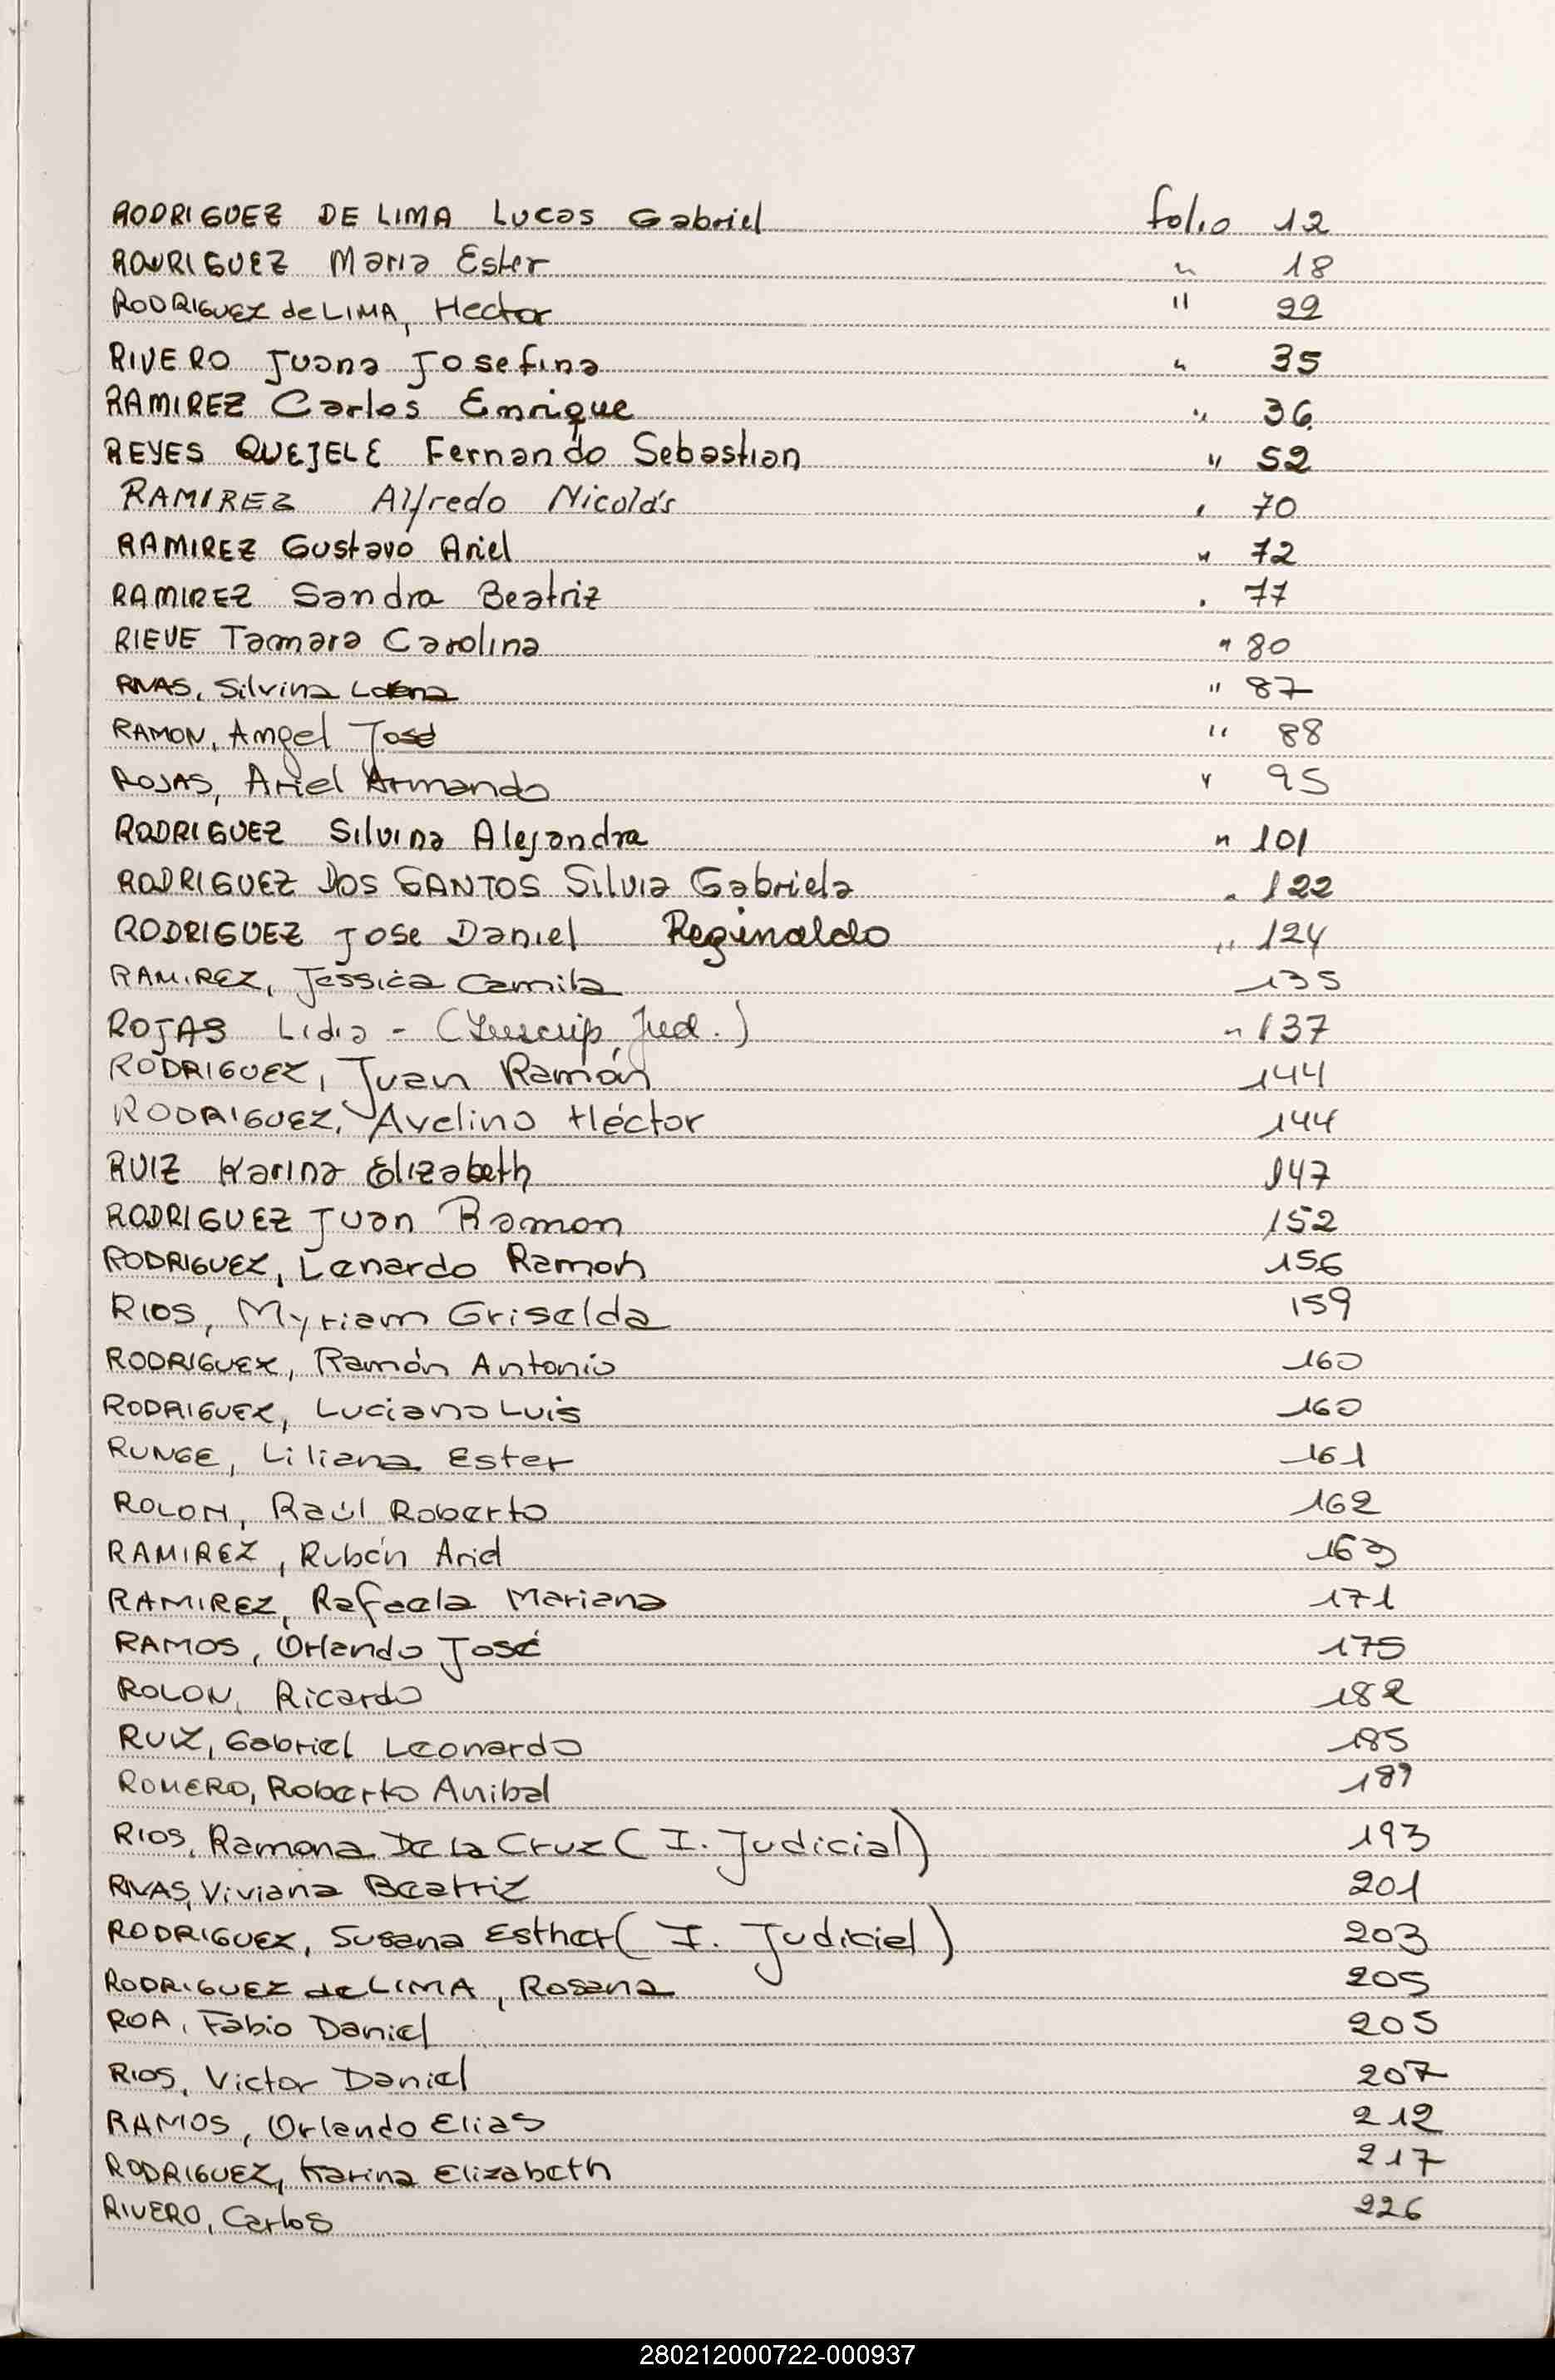 RODRIGUEZ DE LIMA Lucas Gabriel folio 12
RODRIGUEZ Maria Ester " 18
RODRIGUEZ de LIMA, Hector " 22
RIVERO Juana Josefina " 35
RAMIREZ Carlos Enrique " 36
REYES QUEJELE Fernando Sebastian " 52
RAMIREZ Alfredo Nicolás " 70
RAMIREZ Gustavo Ariel " 72
RAMIREZ Sandra Beatriz " 77
RIEVE Tamara Carolina " 80
RIVAS, Silvina " 87
RAMON, Angel José " 88
ROJAS, Ariel Armando " 95
RODRIGUEZ Silvina Alejandra " 101
RODRIGUEZ DOS SANTOS Silvia Gabriela " 122
RODRIGUEZ Jose Daniel Reginaldo " 124
RAMIREZ, Jessica Camila 135
ROJAS Lidia - (Inscrip. Jud.) " 137
RODRIGUEZ, Juan Ramón 144
RODRIGUEZ, Avelino Héctor 144
RUIZ Karina Elizabeth 147
RODRIGUEZ Juan Ramon 152
RODRIGUEZ, Lenardo Ramon 156
RIOS, Myriam Griselda 159
RODRIGUEZ, Ramón Antonio 160
RODRIGUEZ, Luciano Luis 160
RUNGE, Liliana Ester 161
ROLON, Raúl Roberto 162
RAMIREZ, Rubén Ariel 163
RAMIREZ, Rafaela Mariana 171
RAMOS, Orlando José 175
ROLON, Ricardo 182
RUIZ, Gabriel Leonardo 185
ROMERO, Roberto Anibal 189
RIOS, Ramona De la Cruz (I. Judicial) 193
RIVAS, Viviana Beatriz 201
RODRIGUEZ, Susana Esther (I. Judicial) 203
RODRIGUEZ de LIMA, Rosana 205
ROA, Fabio Daniel 205
RIOS, Victor Daniel 207
RAMOS, Orlando Elias 212
RODRIGUEZ, Karina Elizabeth 217
RIVERO, Carlos 226
280212000722-000937